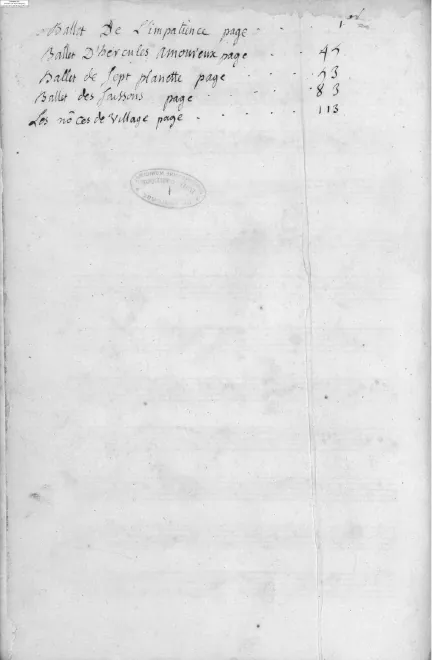 Ballet De L'impatience page . . . 1
Ballet D'hercules Amoureux page . . . 45
Ballet de Sept planette page . . . 53
Ballet des Saisons page . . . 83
Les nôces de village page . . . . . 113